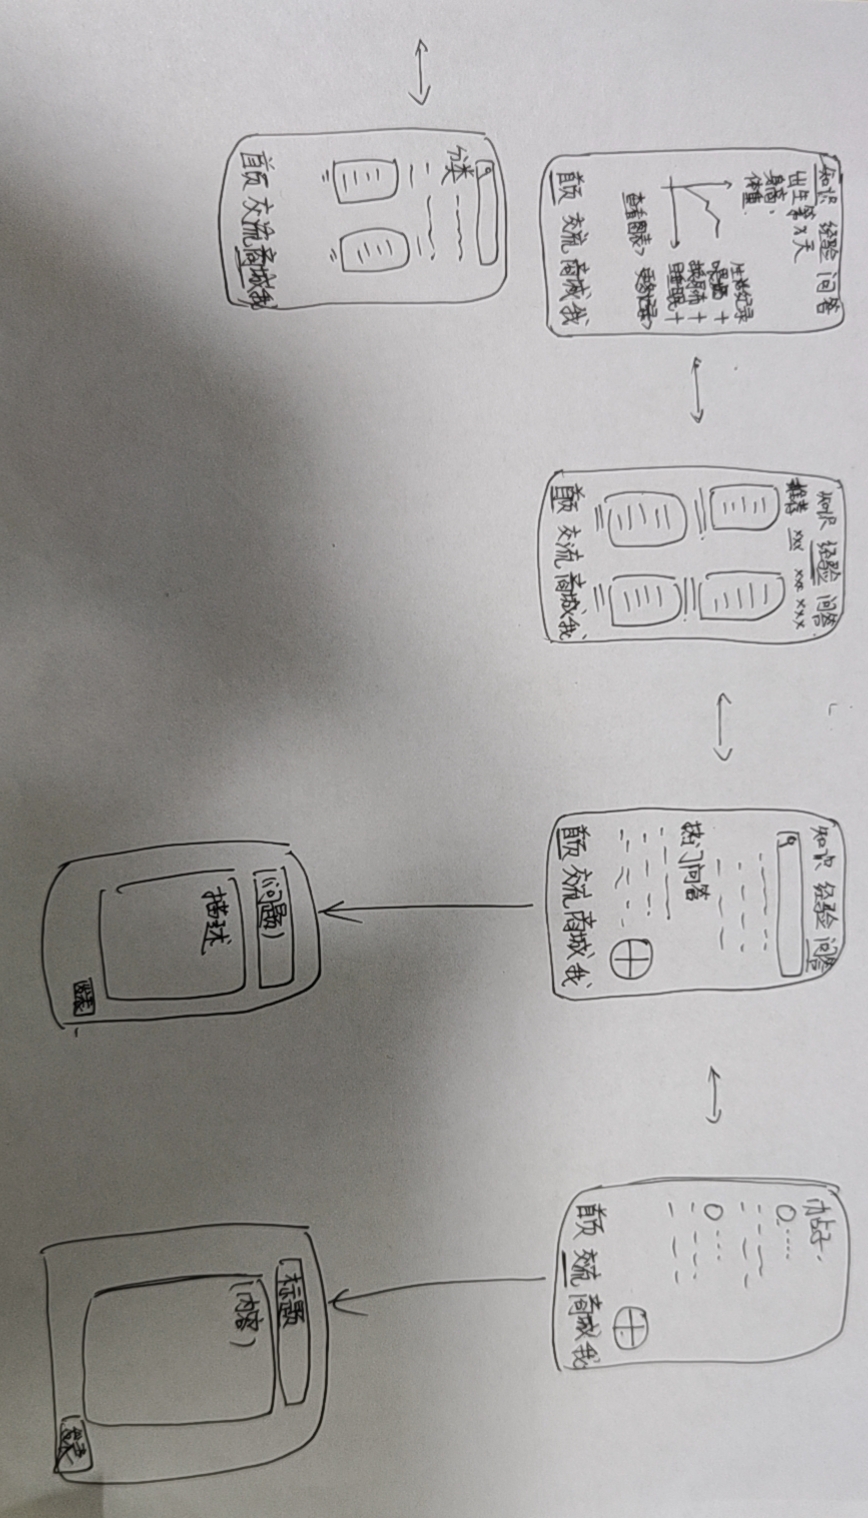 知识 经验 问答
出生第X天
身高:
体重:
生活记录
喂奶 +
换尿布 +
睡眠 +
查看图表>
更多记录>
首页 交流 商城 我
知识 经验 问答
推荐 xxx xxx xxx
首页 交流 商城 我
知识 经验 问答
热门问答
首页 交流 商城 我
帖子
首页 交流 商城 我
分类
首页 交流 商城 我
(问题)
描述
发表
标题
(内容)
发表